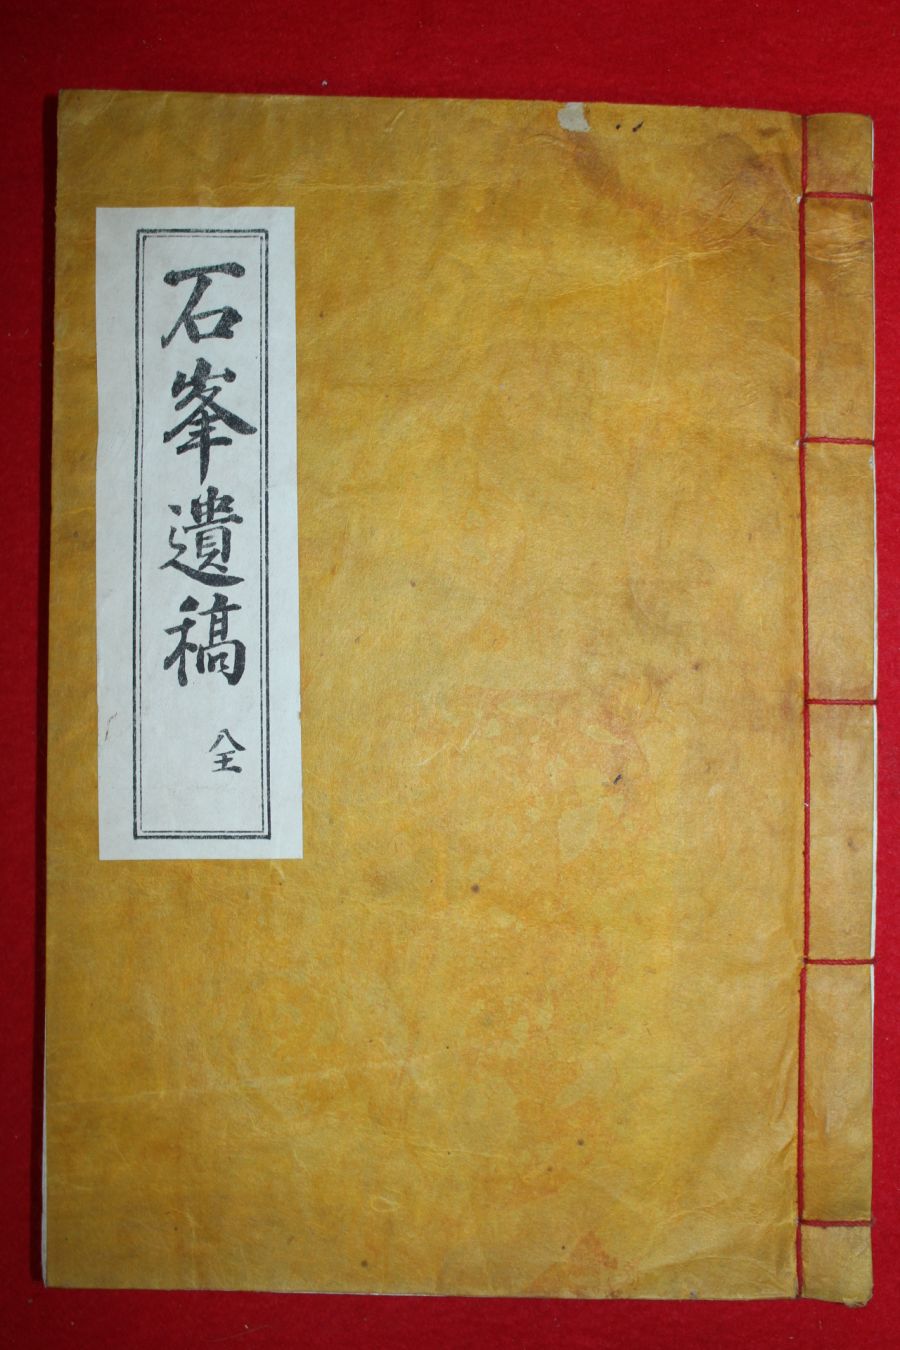 石峯遺稿
全